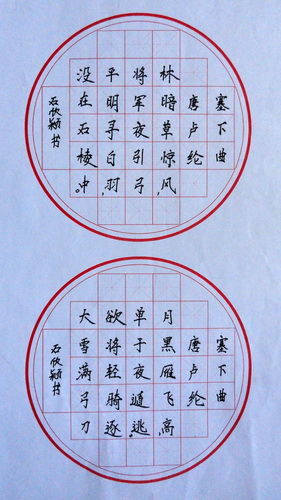 塞下曲
唐卢纶
林暗草惊风,
将军夜引弓,
平明寻白羽,
没在石棱中。
石欣颖书
塞下曲
唐卢纶
月黑雁飞高,
单于夜遁逃。
欲将轻骑逐,
大雪满弓刀
石欣颖书